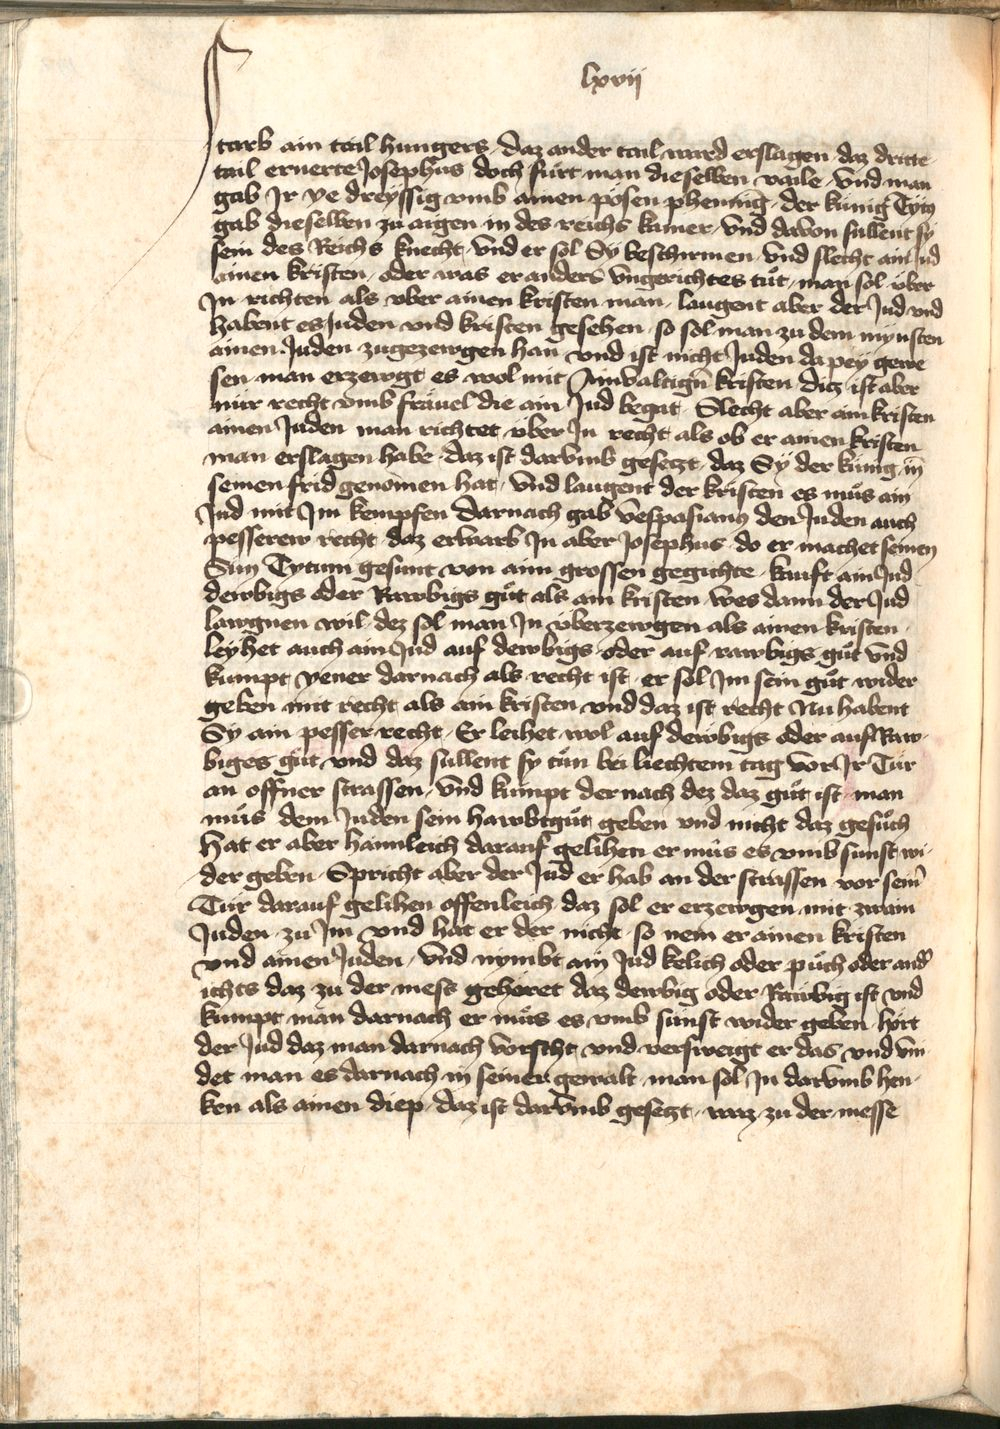 lxvii
Starb ain tail hungers daz ander tail ward erslagen daz dritte
tail ernerte Josephus doch fürt man dieselben vaile vnd man
gab Jr ye dreyssig vmb ainen pösen phening der künig Tytus
gab dieselben zu aigen in des reichs kamer vnd davon sullent sy
sein des Reichs knecht vnd er sol Sy beschirmen vnd slecht ain Jud
ainen kristen oder was er anders vngerichtes tüt man sol über
Jn richten als vber ainen kristen man laugent aber der Jud vnd
habent es Juden vnd kristen gesehen so sol man zu dem mynsten
ainen Juden zugezewgen han vnd ist nicht Juden da pey gewe
sen man erzewgt es wol mit Ainvaltign kristen diz ist aber
nür recht vmb frävel die ain Jud begat Slecht aber ain kristen
ainen Juden man richtet über Jn recht als ob er ainen kristen
man erslagen habe daz ist darvmb gesetzt daz Sy der künig in
seinen frid genomen hat vnd laugent der kristen es müs ain
Jud mit Jm kempfen Darnach gab vespasianus den Juden auch
pesserew recht daz erwarb Jn aber Josephus do er machet seinen
Sun Tytum gesunt von aim grossen gegichte kauft ain Jud
dewbigs oder Rawbigs güt als ain kristen wes dann der Jud
lawgnen wil dez sol man Jn überzewgen als ainen kristen
leyhet auch ain Jud auf dewbigs oder auf rawbigs güt vnd
kumpt yener darnach als recht ist er sol Jm sein güt wider
geben mit recht als ain kristen vnd daz ist recht Nu habent
Sy ain pesser recht Er leihet wol auf dewbigs oder auf Raw
biges güt vnd daz sullent sy tün bei liechtem tag vor Jr Tür
an offner strassen vnd kumpt der nach dez daz güt ist man
müs dem Juden sein hawbtgüt geben vnd nicht daz gesüch
hat er aber haimleich darauf gelihen er müs es vmb sunst wi
der geben Spricht aber der Jud er hab an der strassen vor seinr
Tür darauf gelihen offenleich daz sol er erzewgen mit zwain
Juden zu Jm vnd hat er der nicht so nem er ainen kristen
vnd ainen Juden vnd nymbt ain Jud kelich oder püch oder andr
ichts daz zu der mess gehöret daz dewbig oder Rawbig ist vnd
kumpt man darnach er müs es vmb sünst wider geben hört
der Jud daz man darnach vorscht vnd versweigt er das vnd vin
det man es darnach in seiner gewalt man sol Jn darvmb hen
ken als ainen diep daz ist darvmb gesetzt waz zu der messe